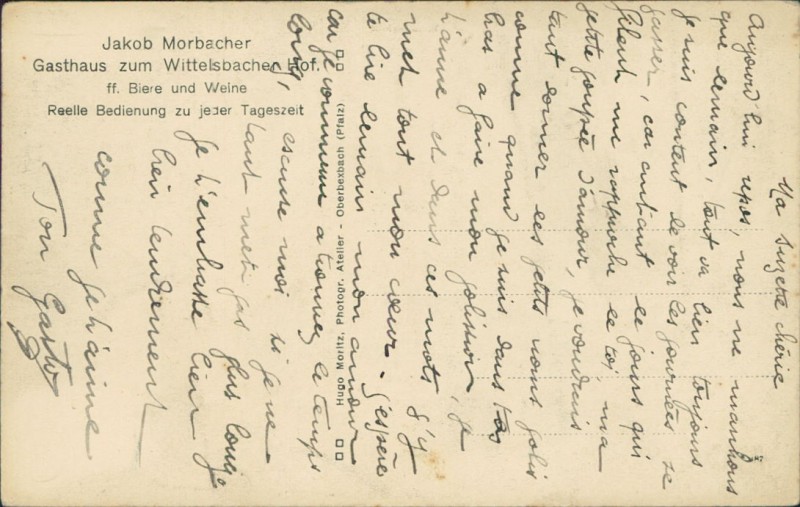 Jakob Morbacher
Gasthaus zum Wittelsbacher Hof.
ff. Biere und Weine
Reelle Bedienung zu jeder Tageszeit
Hugo Moritz, Photogr. Atelier - Oberbexbach (Pfalz)
Ma Suzette chérie
Aujourd'hui repos, nous ne manhons
que demain, tout va bien toujours
je suis content de voir les journées se
passer, car autant de jours qui
filent me rapproche de toi, ma
petite poupée d'amour, je voudrais
tant donner les petits noms jolis
comme quand je suis dans tes
bras a faire mon polisson, je
t'aime et dans ces mots j'y
met tout mon cœur. J'espère
te lire demain mon amour
car je commence a trouver le temps
long, excuse moi si je ne
t'en met pas plus long je
Je t'embrasse bien
bien tendrement
comme je t'aime
Ton Gaston